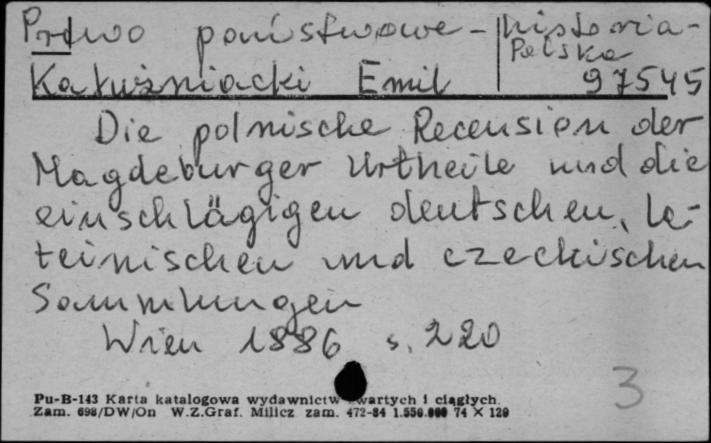 Prawo państwowe - historia -
Polska
Kałużniacki Emil 97545
Die polnische Recension der
Magdeburger Urtheile und die
einschlägigen deutschen, la-
teinischen und czechischen
Sammlungen
Wien 1886 s. 220
3
Pu-B-143 Karta katalogowa wydawnictw zwartych i ciągłych.
Zam. 698/DW/On W.Z.Graf. Milicz zam. 472-84 1.550.000 74 × 120